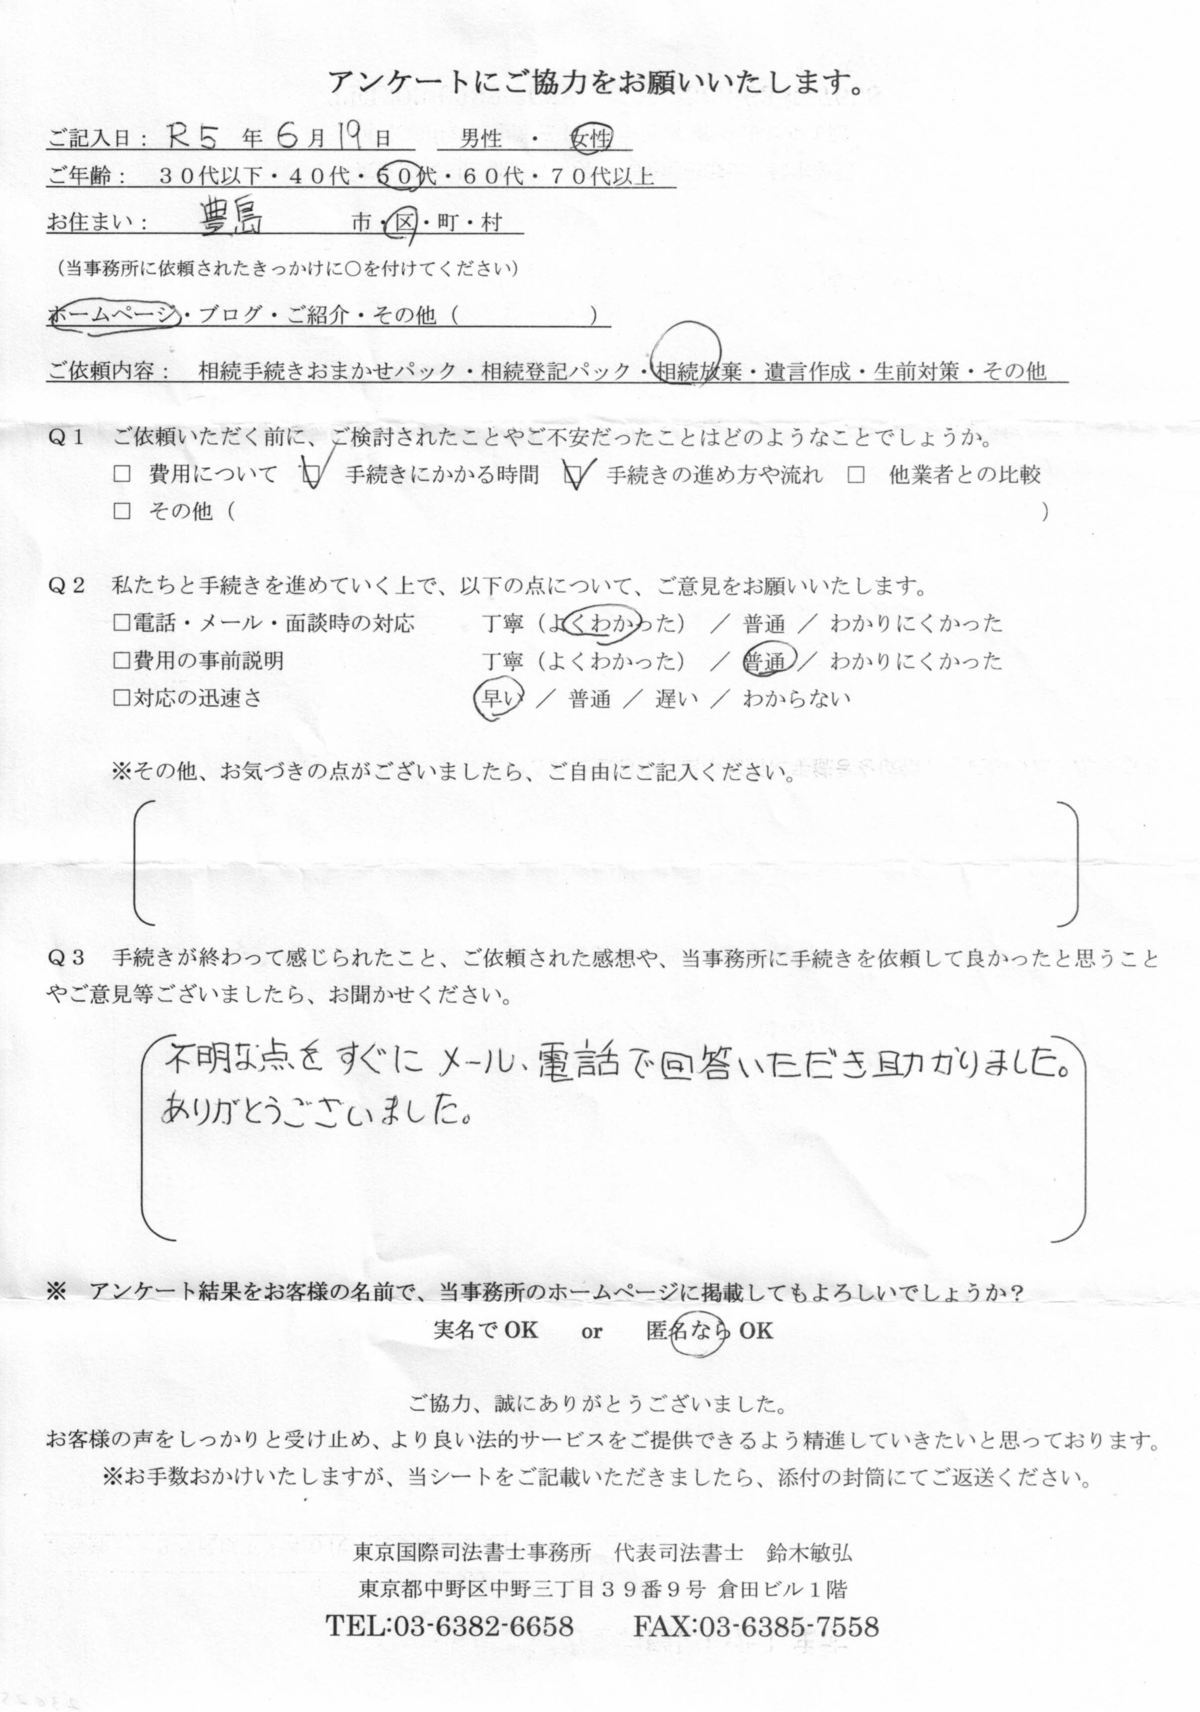 アンケートにご協力をお願いいたします。
ご記入日： R5 年 6 月 19 日　男性 ・ 女性
ご年齢：　３０代以下・４０代・５０代・６０代・７０代以上
お住まい：　豊島　市・区・町・村
（当事務所に依頼されたきっかけに○を付けてください）
ホームページ・ブログ・ご紹介・その他（　　　　　　）
ご依頼内容：　相続手続きおまかせパック・相続登記パック・相続放棄・遺言作成・生前対策・その他
Ｑ１　ご依頼いただく前に、ご検討されたことやご不安だったことはどのようなことでしょうか。
□ 費用について ☑ 手続きにかかる時間 ☑ 手続きの進め方や流れ □ 他業者との比較
□ その他（　　　　　　）
Ｑ２　私たちと手続きを進めていく上で、以下の点について、ご意見をお願いいたします。
□電話・メール・面談時の対応　丁寧（よくわかった） ／ 普通 ／ わかりにくかった
□費用の事前説明　丁寧（よくわかった） ／ 普通 ／ わかりにくかった
□対応の迅速さ　早い ／ 普通 ／ 遅い ／ わからない
※その他、お気づきの点がございましたら、ご自由にご記入ください。
Ｑ３　手続きが終わって感じられたこと、ご依頼された感想や、当事務所に手続きを依頼して良かったと思うこと
やご意見等ございましたら、お聞かせください。
不明な点をすぐにメール、電話で回答いただき助かりました。
ありがとうございました。
※　アンケート結果をお客様の名前で、当事務所のホームページに掲載してもよろしいでしょうか？
実名で OK　or　匿名なら OK
ご協力、誠にありがとうございました。
お客様の声をしっかりと受け止め、より良い法的サービスをご提供できるよう精進していきたいと思っております。
※お手数おかけいたしますが、当シートをご記載いただきましたら、添付の封筒にてご返送ください。
東京国際司法書士事務所　代表司法書士　鈴木敏弘
東京都中野区中野三丁目３９番９号 倉田ビル１階
TEL:03-6382-6658　FAX:03-6385-7558